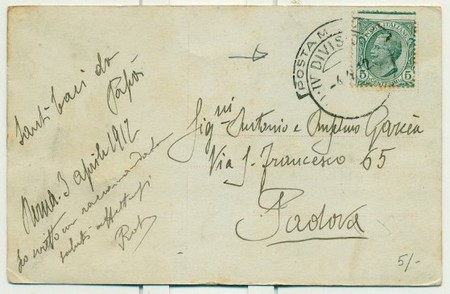 Tanti baci da
Papà
Roma. 3 aprile 1912
ho scritto una raccomandata
saluti affettuosi
POSTA M
IV DIVIS
5 5
Sig.ni Antonio e Anselmo Garcèa
Via S. Francesco 65
Padova
5/-